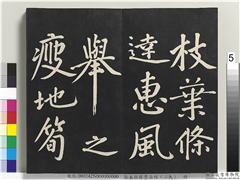 枝葉條
達惠風
舉之
瘦地筍
5